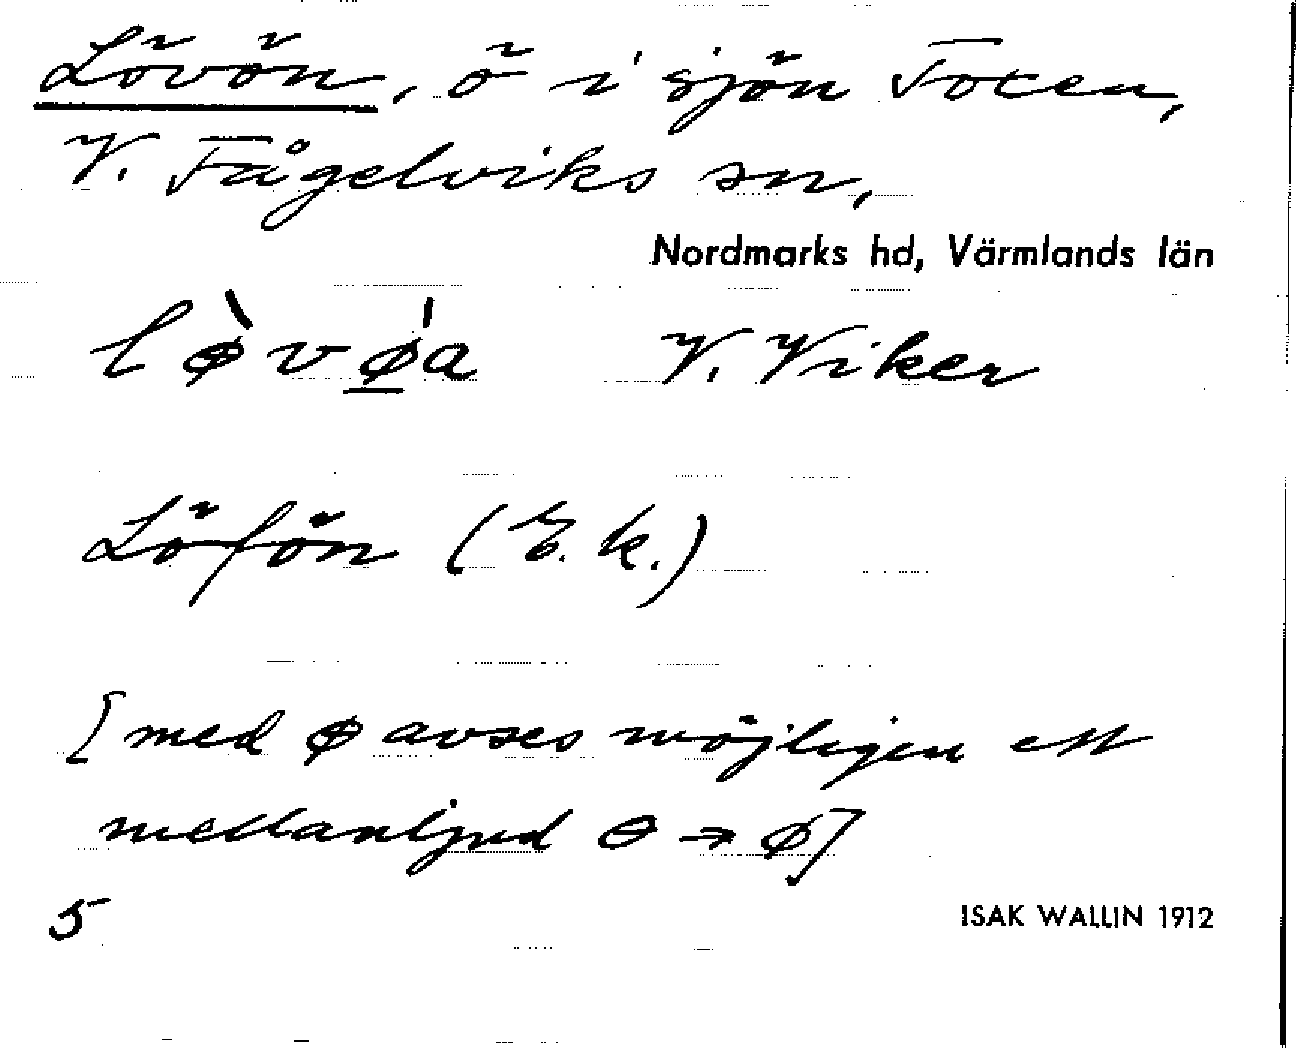 Lövön, ö i sjön Foxen,
V. Fågelviks sn,
Nordmarks hd, Värmlands län
lø̀vǿ̲a V. Viker
Löfön (E.k.)
[med ø avses möjligen ett
mellanljud ɵ → ø]
5
ISAK WALLIN 1912